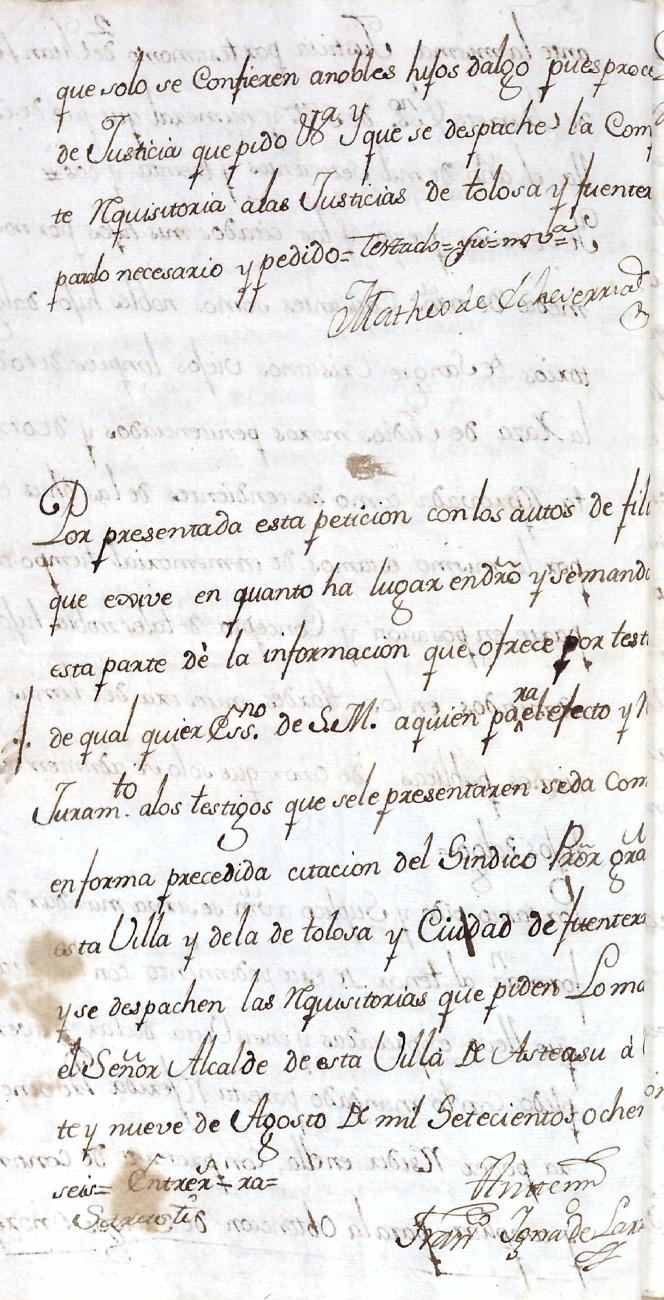 que solo se Confieren a nobles hijos dalgo pues proce
de Justicia que pido &a y Y que se despache la Com
te Rquisitoria a las Justicias de tolosa y fuenter
pardo necesario y pedido= Testado=
Matheo de Echeverria
Por presentada esta peticion con los autos de fili
que exvive en quanto ha lugar en dro y se mando
esta parte dè la informacion que ofrece por testi
de qual quier Essno. de S.M. a quien para el efecto y
Juramto. a los testigos que se le presentaren se da Com
en forma precedida citacion del Sindico Pror gra
esta Villa y de la de tolosa y Ciudad de fuenter
y se despachen las Rquisitorias que piden Lo ma
el Señor Alcalde de esta Villa De Asteasu á
te y nueve de Agosto De mil Setecientos ochen
seis= Entrer.s= ra=
Fran.co Igna.o de Larr